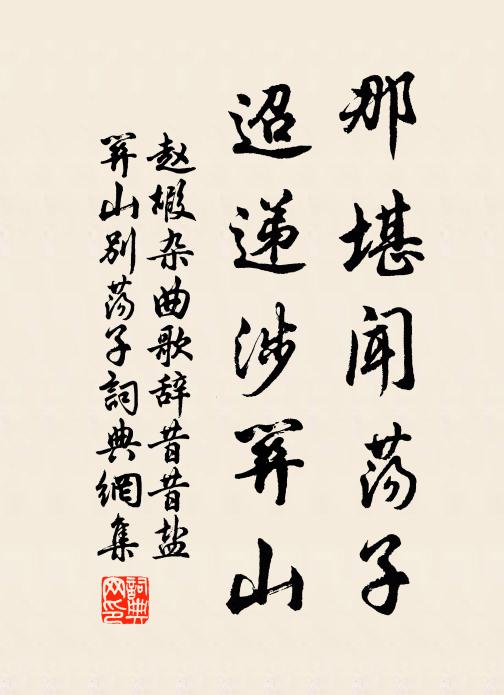 那堪闻荡子
迢递涉关山
赵嘏杂曲歌辞昔昔盐
关山别荡子词典网集
词典网印